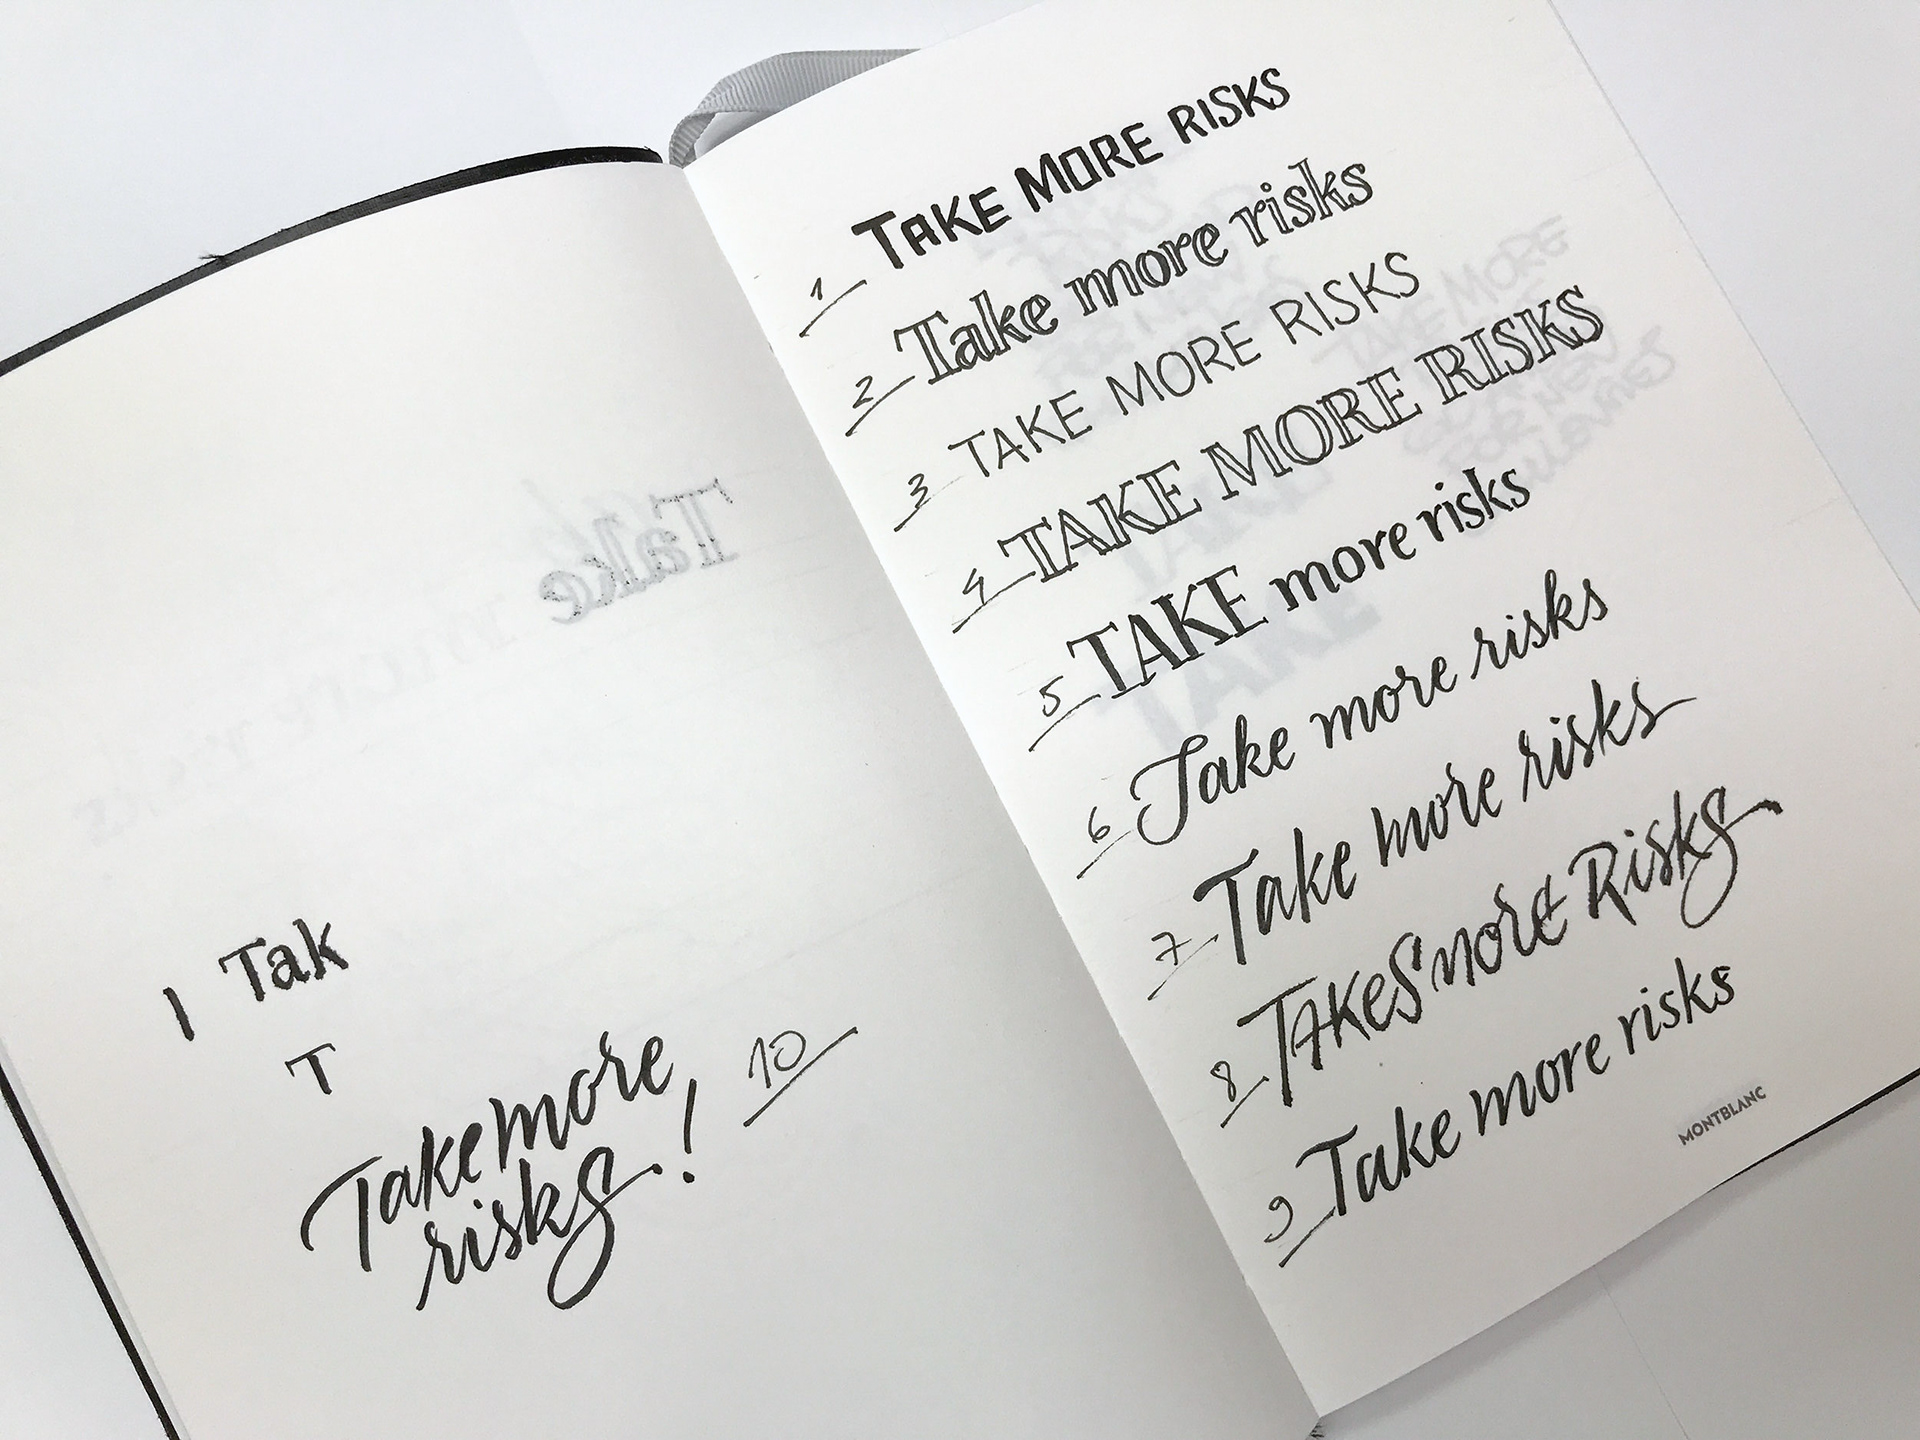 1 Tak
T
Take more
risks! 10
1 TAKE MORE RISKS
2 Take more risks
3 TAKE MORE RISKS
4 TAKE MORE RISKS
5 TAKE more risks
6 Take more risks
7 Take more risks
8 TAKES more Risks
9 Take more risks
MONTBLANC